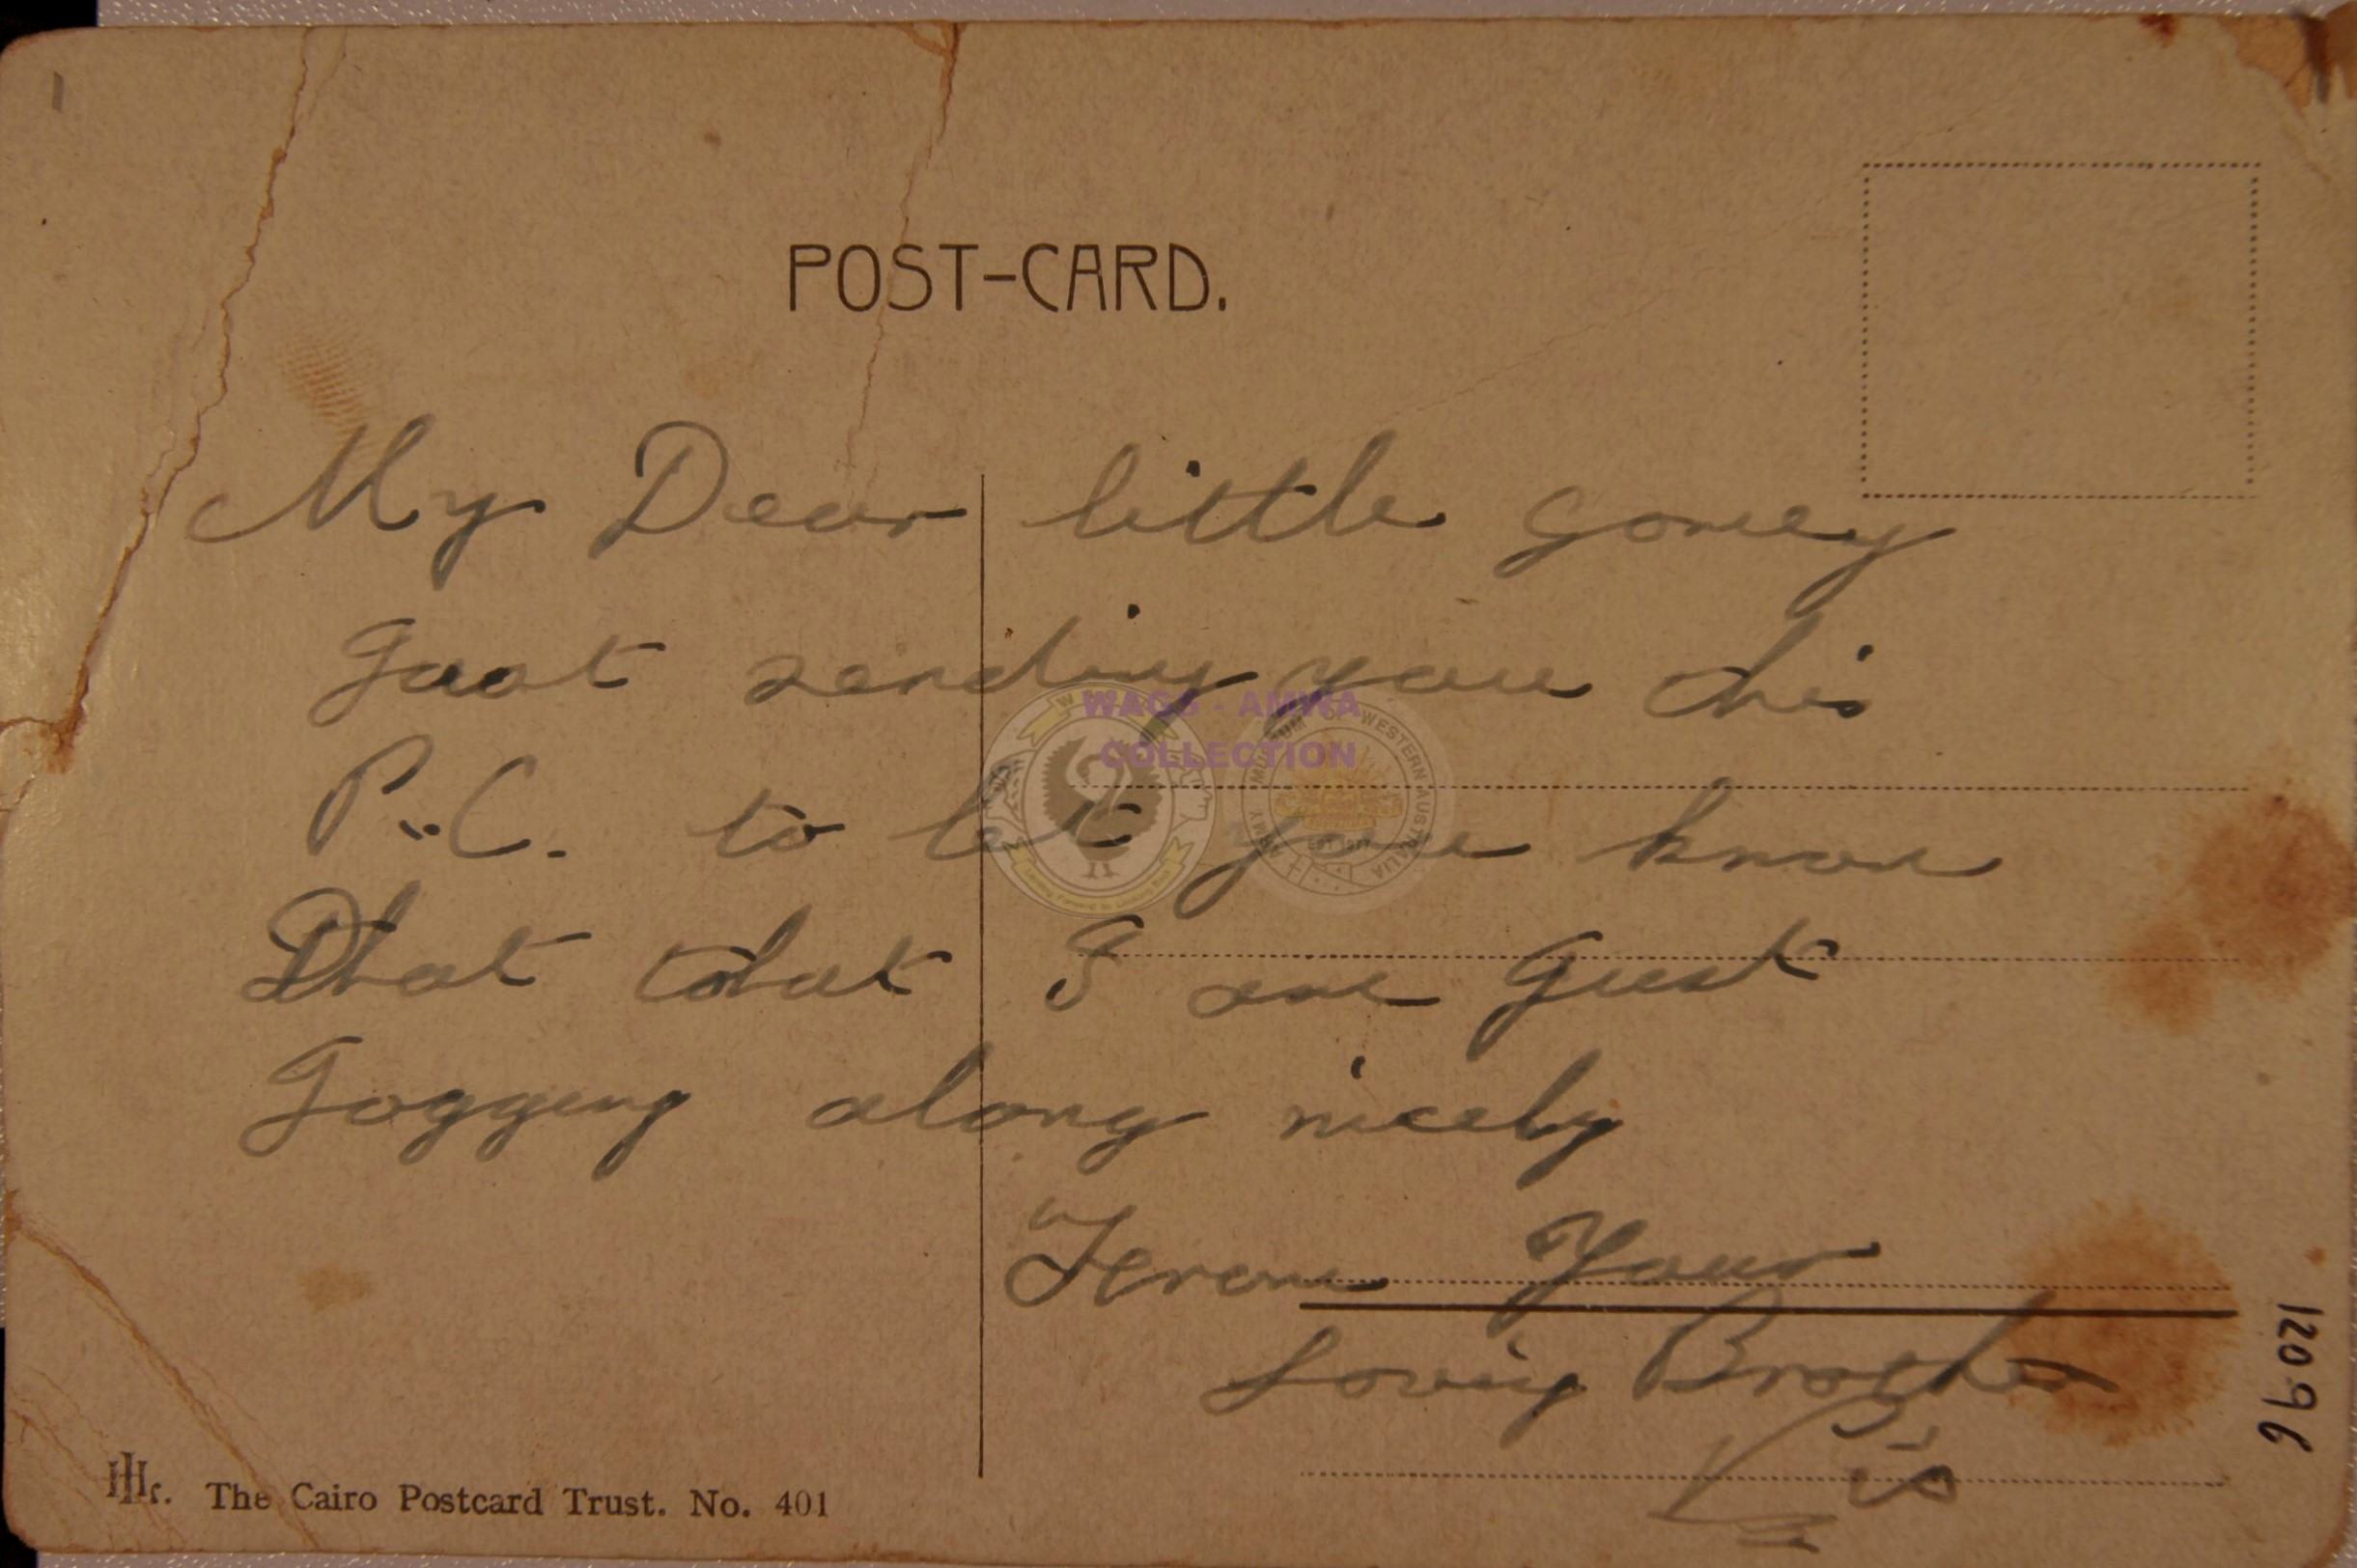 POST-CARD.
My Dear little Gorney
Gust sending you this
P.C. to let you know
That that I am Gust
Gogging along nicely
From Your
Loving Brother
Vic
The Cairo Postcard Trust. No. 401
12096
WAGS - AMWA
COLLECTION
WESTERN AUSTRALIA
EST 1977